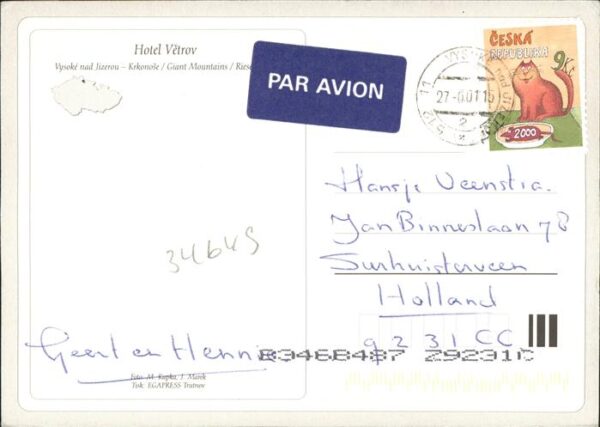 Hotel Větrov
Vysoké nad Jizerou – Krkonoše / Giant Mountains /
PAR AVION
ČESKÁ
REPUBLIKA
9Kč
2000
512 11
2
Hansje Veenstra.
Jan Binneslaan 78
Surhuisterveen
Holland
9231CC
34649
Geert en Hennie
B346B487 29231C
Foto: M. Kupka, J. Marek
Tisk: EGAPRESS Trutnov